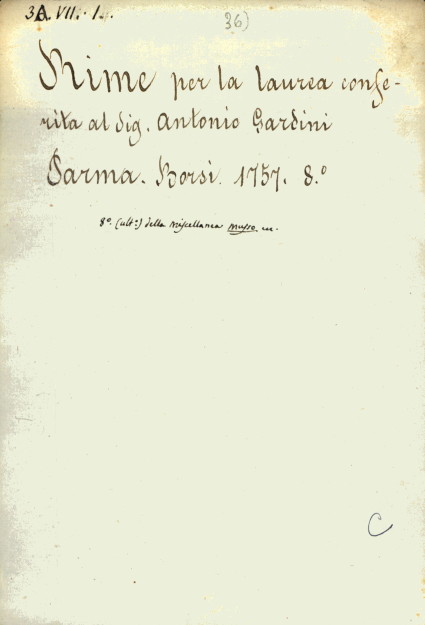 3A. VII. 1
36)
Rime per la laurea confe-
rita al Sig. Antonio Gardini
Parma. Borsi. 1757. 8.º
8º. (ult.º) della Miscellanea Musso
C